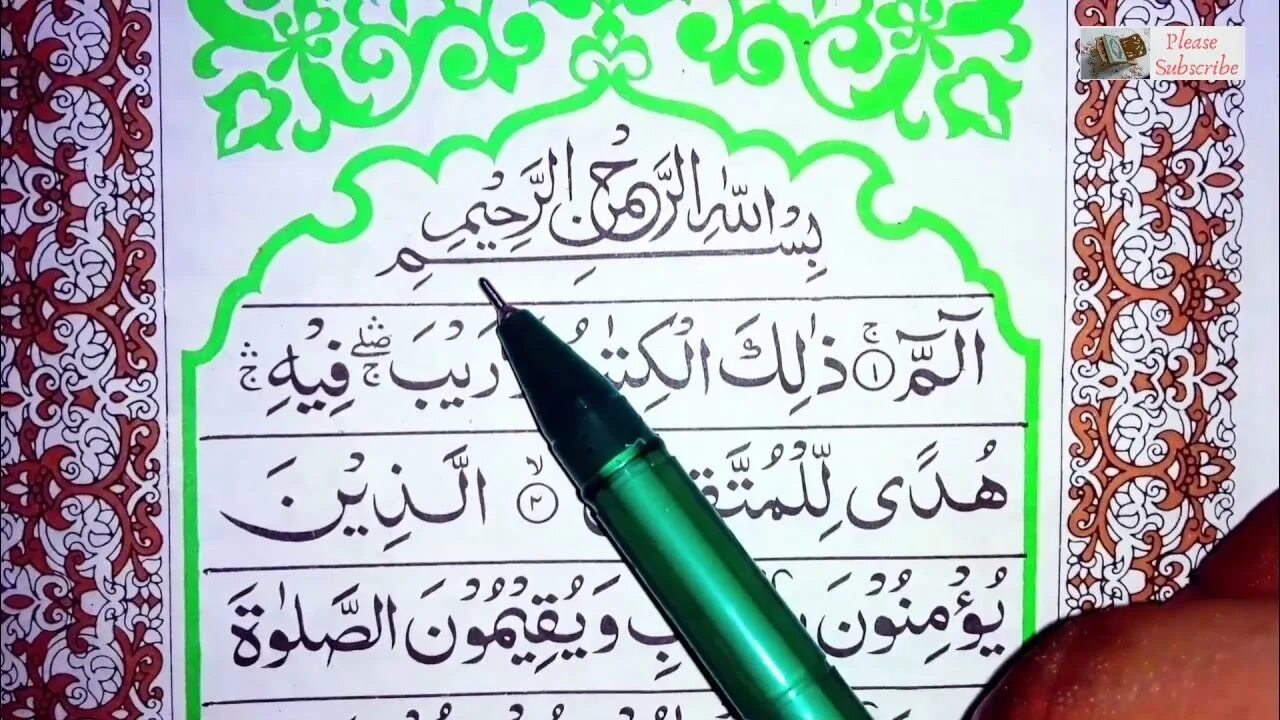 Please
Subscribe
بِسْمِ اللّٰهِ الرَّحْمٰنِ الرَّحِيْمِ
الٓمّٓ ۚ ۝۱ ذٰلِكَ الْكِتٰبُ رَيْبَ ۛۖۚ فِيْهِ ۛۚ
هُدًى لِّلْمُتَّقِ ۙ ۝۲ الَّذِيْنَ
يُؤْمِنُوْنَ بِ وَيُقِيْمُوْنَ الصَّلٰوةَ